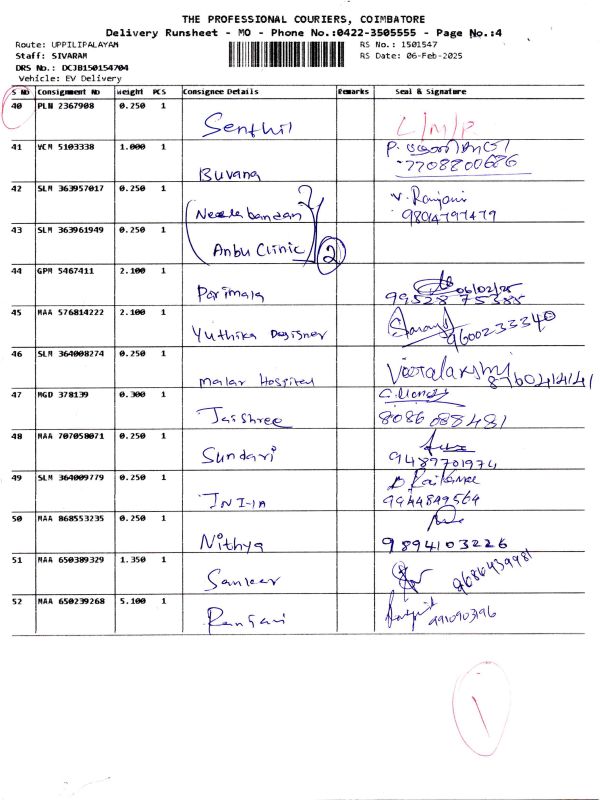 THE PROFESSIONAL COURIERS, COIMBATORE
Delivery Runsheet - MO - Phone No.:0422-3505555 - Page No.:4
Route: UPPILIPALAYAM
RS No.: 1501547
Staff: SIVARAM
RS Date: 06-Feb-2025
DRS No.: DCJB150154704
Vehicle: EV Delivery
S No Consignment No Weight PCS Consignee Details Remarks Seal & Signature
40 PLN 2367908 0.250 1
Senthil L/M/P.
41 VCM 5103338 1.000 1 P.
Buvana 7708800686
42 SLM 363957017 0.250 1 V. Ranjani
9894797479
43 SLM 363961949 0.250 1
Anbu Clinic 2
44 GPM 5467411 2.100 1
Parimala 06/02/25
99528 75388
45 MAA 576814222 2.100 1
Yuthika Designer 9600233340
46 SLM 364008274 0.250 1
Malar Hospital Veeralakshmi
8760414141
47 MGD 378139 0.300 1
Jaishree 8086088481
48 MAA 707058071 0.250 1
Sundari 9489701974
49 SLM 364009779 0.250 1
9944849564
50 MAA 868553235 0.250 1
Nithya 9894103226
51 MAA 650389329 1.350 1
Sankar 9686439981
52 MAA 650239268 5.100 1
9910903196
1